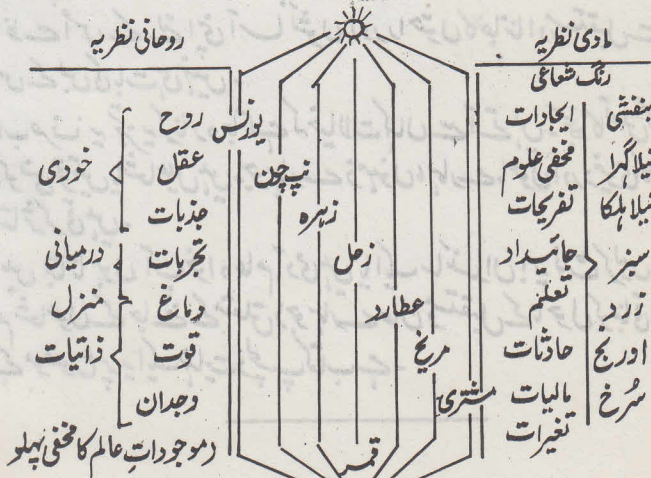 مادی نظریہ
روحانی نظریہ
رنگ شعاعی
بنفشی
نیلا گہرا
نیلا ہلکا
سبز
زرد
اورنج
سُرخ
ایجادات
مخفی علوم
تفریحات
جائیداد
تعلم
حادثات
مالیات
تغیرات
یورنس
نپ چون
زہرہ
زحل
عطارد
مریخ
مشتری
قمر
روح
عقل
جذبات
تجربات
دماغ
قوت
وجدان
خودی
درمیانی
منزل
ذاتیات
(موجوداتِ عالم کا مخفی پہلو